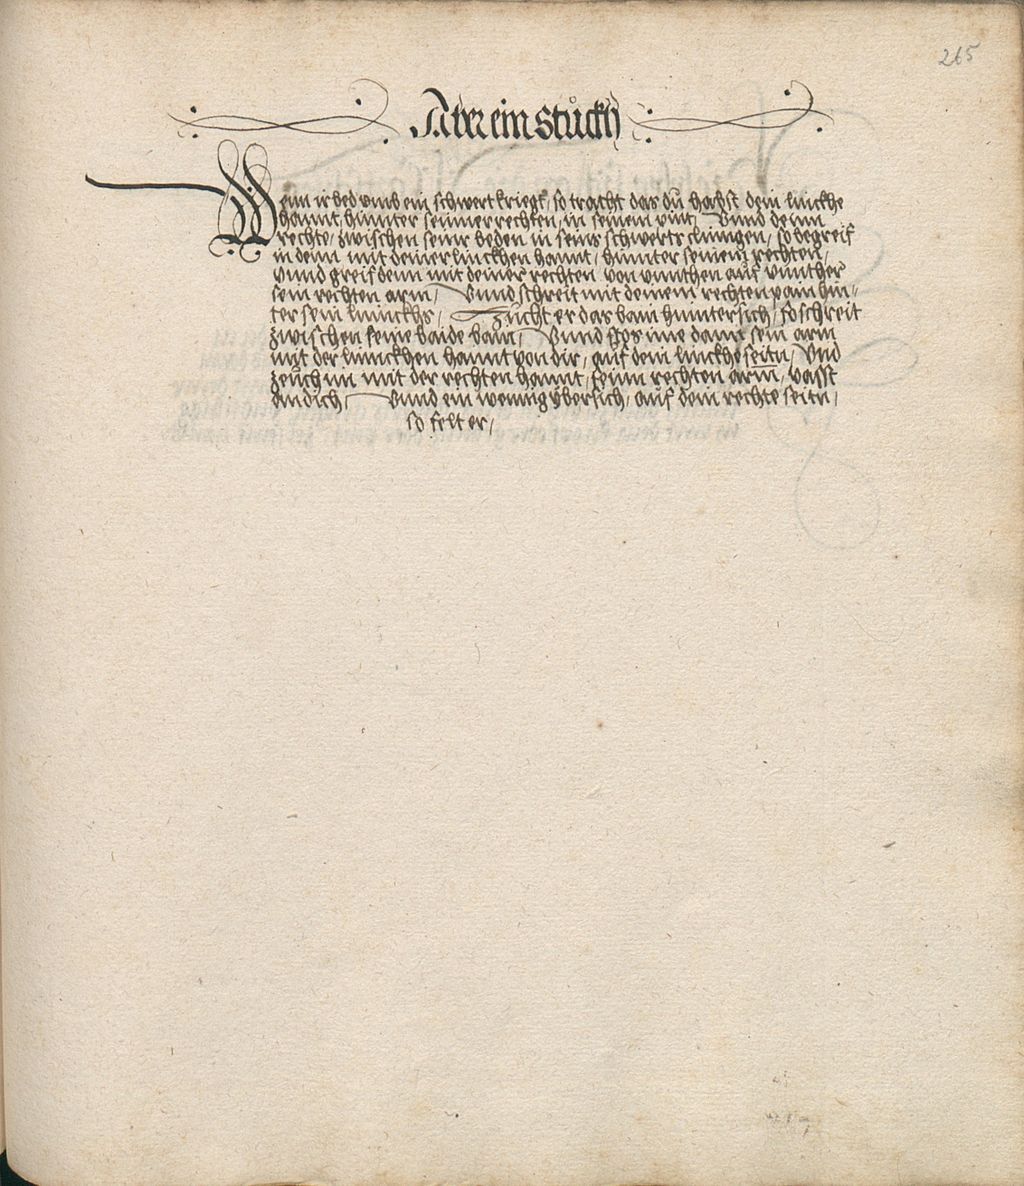 265
Aber ein stuckh
Wenn ir bed vmb ein schwert kriegt, so tracht das du habst dein linckhe
hannt, hinnter seinner rechten, in seinem pint, Vnnd denn
rechte, zwischen seinr beden in seins schwerts clingen, so begreif
in denn mit deiner linckhen hannt, hinnter seinem rechten,
vnnd greif denn mit deiner rechten von vnnthen auf vnnther
sein rechten arm, Vnnd schreit mit deinem rechten pain hin,,
ter sein linnckhs, Zucht er das bain hintersich, so schreit
zwischen seine baide bain, Vnnd stos ime dann sein arm
mit der linnckhen hannt von dir, auf dein linckhe seitn, Vnd
zeuch im mit der rechten hannt, seinn rechten arm, vasst
an dich, Vnnd ein wennig vbersich, auf dein rechte seitn,
so felt er,